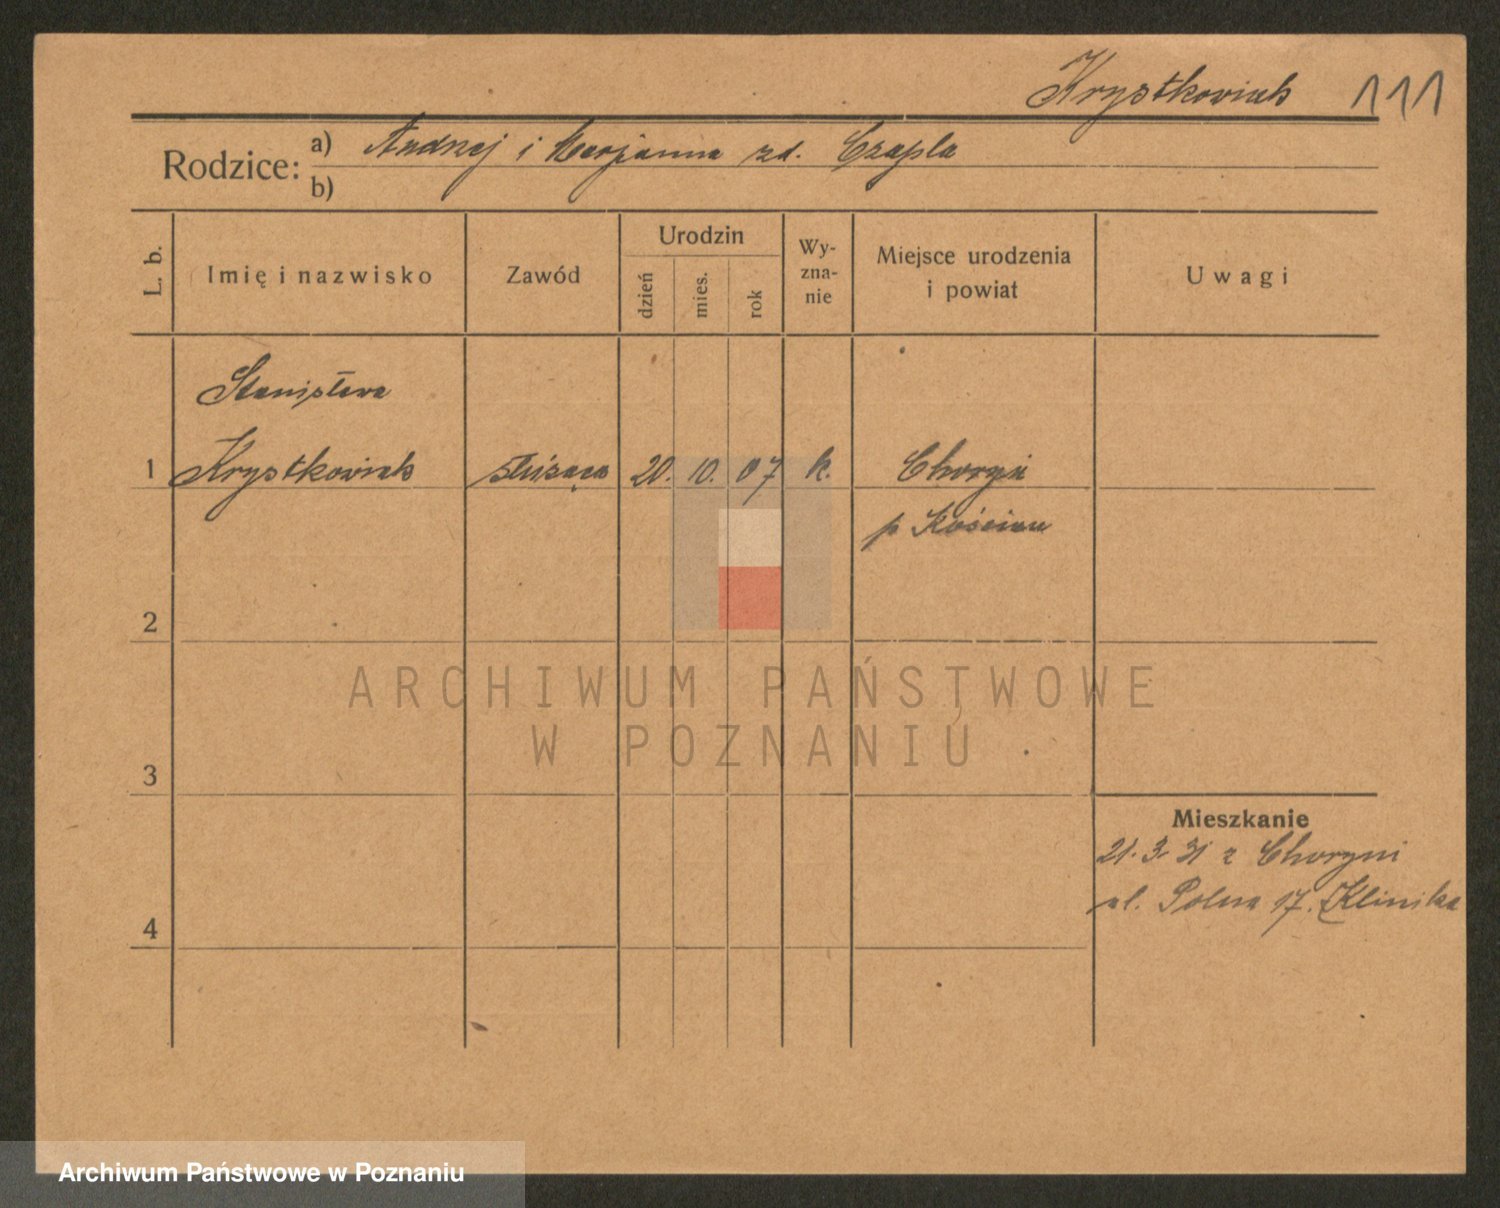 Krystkowiak 111
Rodzice: a) Andrzej i Marjanna zd. Czapla
b)
L. b.
Imię i nazwisko
Zawód
Urodzin
dzień
mies.
rok
Wy-
zna-
nie
Miejsce urodzenia
i powiat
Uwagi
Stanisława
1 Krystkowiak służąca 20. 10. 07 k. Choryń
p Kościan
2
3
4
Mieszkanie
21. 3. 31 z Choryni
ul. Polna 17. Klinika
ARCHIWUM PAŃSTWOWE
W POZNANIU
Archiwum Państwowe w Poznaniu